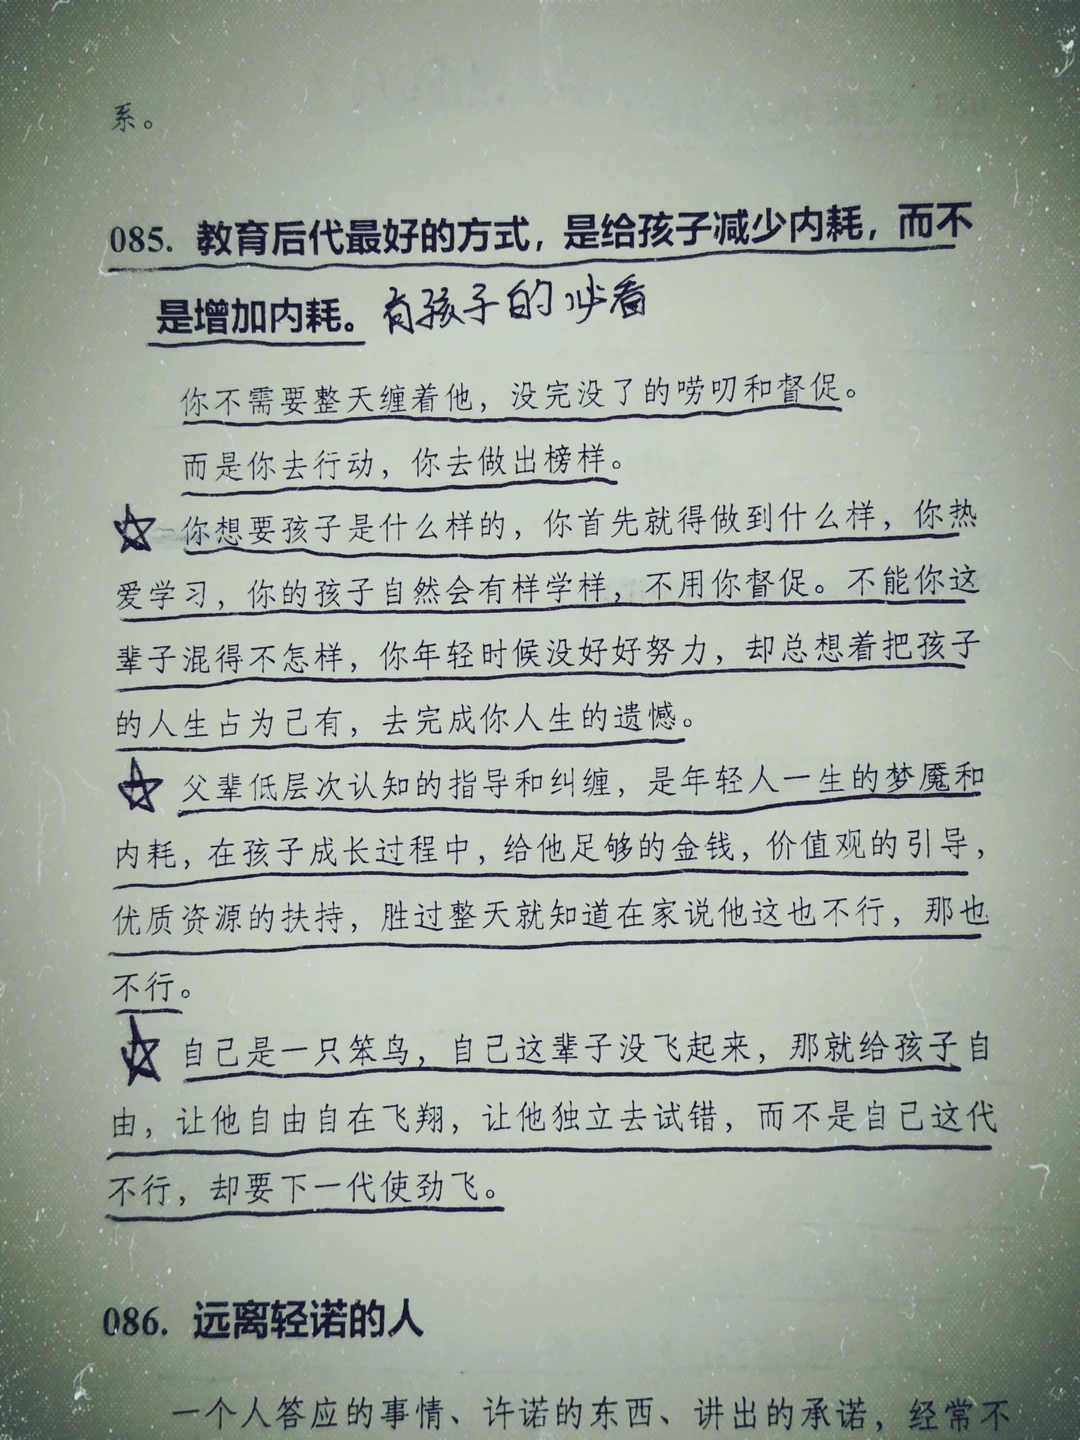 系。
085. 教育后代最好的方式，是给孩子减少内耗，而不
是增加内耗。有孩子的必看
你不需要整天缠着他，没完没了的唠叨和督促。
而是你去行动，你去做出榜样。
你想要孩子是什么样的，你首先就得做到什么样，你热
爱学习，你的孩子自然会有样学样，不用你督促。不能你这
辈子混得不怎样，你年轻时候没好好努力，却总想着把孩子
的人生占为己有，去完成你人生的遗憾。
父辈低层次认知的指导和纠缠，是年轻人一生的梦魇和
内耗，在孩子成长过程中，给他足够的金钱，价值观的引导，
优质资源的扶持，胜过整天就知道在家说他这也不行，那也
不行。
自己是一只笨鸟，自己这辈子没飞起来，那就给孩子自
由，让他自由自在飞翔，让他独立去试错，而不是自己这代
不行，却要下一代使劲飞。
086. 远离轻诺的人
一个人答应的事情、许诺的东西、讲出的承诺，经常不